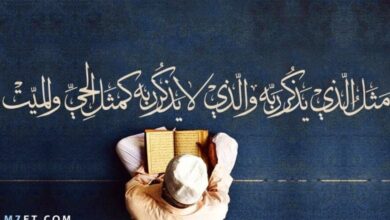 مَثَلُ الَّذِي يَذْكُرُ رَبَّهُ وَالَّذِي لَا يَذْكُرُ رَبَّهُ كَمَثَلِ الْحَيِّ وَالْمَيِّتْ
MZET.COM